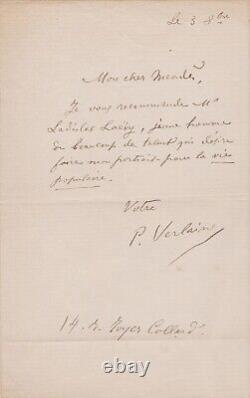 Le 3 8bre
Mon cher Mendès,
Je vous recommande Mr
Ladislas Loëvy, jeune homme
de beaucoup de talent qui désire
faire mon portrait pour la vie
populaire.
Votre
P. Verlaine
14. R. Royer Collard.
© 123fr.com